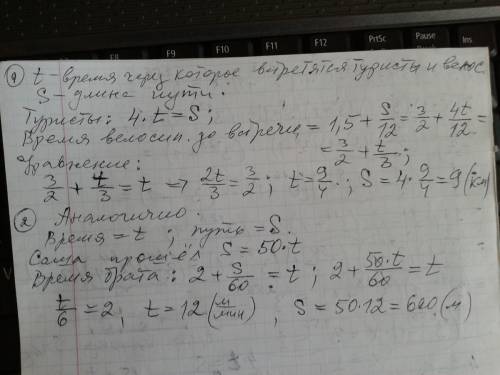 PrtSc Pause
F8 F9 F10 F11 F12
① t - время через которое встретятся туристы и велос.
S - длина пути.
Туристы: 4·t = S;
Время велосип. до встречи = 1,5 + S/12 = 3/2 + 4t/12 =
= 3/2 + t/3;
Уравнение:
3/2 + t/3 = t => 2t/3 = 3/2; t = 9/4; S = 4·9/4 = 9 (км)
② Аналогично.
Время = t; путь = S.
Саша прошёл S = 50·t
Время брата: 2 + S/60 = t; 2 + 50·t/60 = t
t/6 = 2, t = 12 (м/мин), S = 50·12 = 600 (м)